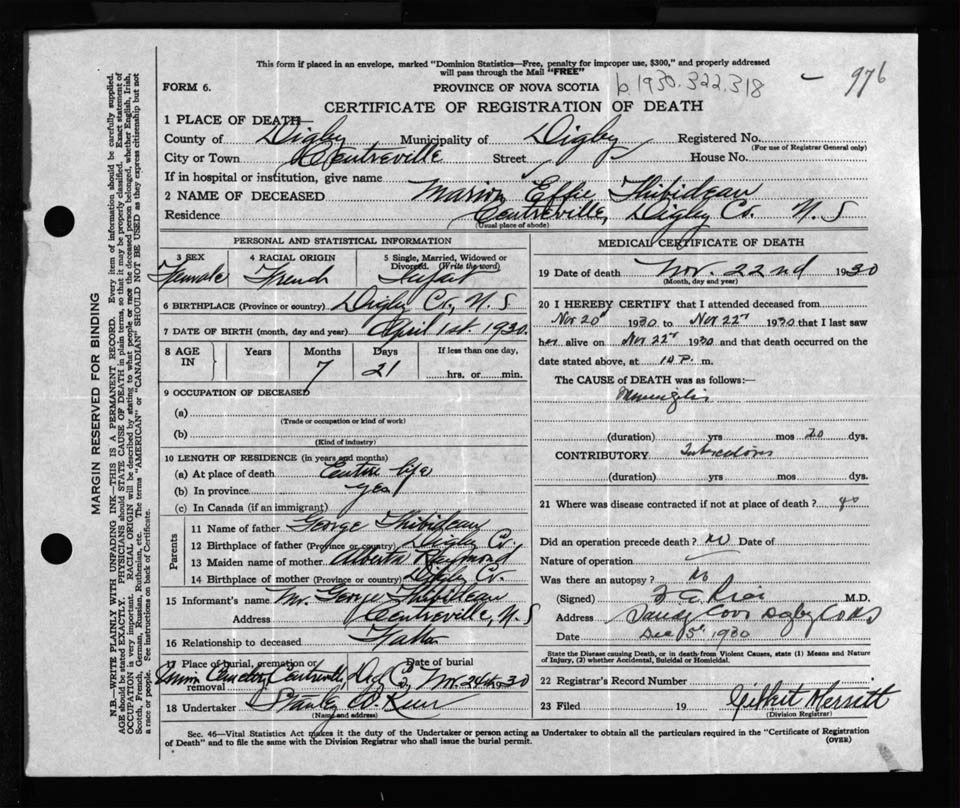 This form if placed in an envelope, marked "Dominion Statistics—Free, penalty for improper use, $300," and properly addressed
will pass through the Mail "FREE"
FORM 6.
PROVINCE OF NOVA SCOTIA
b.1930.322.318
976
CERTIFICATE OF REGISTRATION OF DEATH
1 PLACE OF DEATH—
County of Digby Municipality of Digby Registered No.
(For use of Registrar General only)
City or Town Centreville Street House No.
If in hospital or institution, give name
2 NAME OF DECEASED Marion Effie Thibideau
Residence Centreville, Digby Co. N. S
(Usual place of abode)
PERSONAL AND STATISTICAL INFORMATION
3 SEX 4 RACIAL ORIGIN 5 Single, Married, Widowed or
Divorced. (Write the word)
Female French Infant
6 BIRTHPLACE (Province or country) Digby Co, N. S
7 DATE OF BIRTH (month, day and year) April 1st 1930.
8 AGE IN Years Months Days If less than one day,
7 21 hrs. or min.
9 OCCUPATION OF DECEASED
(a)
(Trade or occupation or kind of work)
(b)
(Kind of industry)
10 LENGTH OF RESIDENCE (in years and months)
(a) At place of death Entire life
(b) In province yes
(c) In Canada (if an immigrant)
Parents
11 Name of father George Thibideau
12 Birthplace of father (Province or country) Digby Co.
13 Maiden name of mother Alberta Raymond
14 Birthplace of mother (Province or country) Digby Co.
15 Informant's name Mr. George Thibideau
Address Centreville, N. S
16 Relationship to deceased Father
17 Place of burial, cremation or removal Date of burial
Cemetery Centreville Dig Co, Nov. 24th 1930
18 Undertaker Stanley
(Name and address)
MEDICAL CERTIFICATE OF DEATH
19 Date of death Nov. 22nd 1930
(Month, day and year)
20 I HEREBY CERTIFY that I attended deceased from
Nov 20 1930 to Nov 22 1930 that I last saw
her alive on Nov 22 1930 and that death occurred on the
date stated above, at 10 P. m.
The CAUSE OF DEATH was as follows:—
Meningitis
(duration) yrs mos 20 dys.
CONTRIBUTORY
(duration) yrs mos dys.
21 Where was disease contracted if not at place of death?
Did an operation precede death? No Date of
Nature of operation
Was there an autopsy? No
(Signed) M.D.
Address Sandy Cove Digby Co NS
Date Dec 5 1930
State the Disease causing Death, or in death from Violent Causes, state (1) Means and Nature
of Injury, (2) whether Accidental, Suicidal or Homicidal.
22 Registrar's Record Number
23 Filed 19 Gilbert Merritt
(Division Registrar)
Sec. 46—Vital Statistics Act makes it the duty of the Undertaker or person acting as Undertaker to obtain all the particulars required in the "Certificate of Registration
of Death" and to file the same with the Division Registrar who shall issue the burial permit.
(OVER)
MARGIN RESERVED FOR BINDING
N.B.—WRITE PLAINLY WITH UNFADING INK—THIS IS A PERMANENT RECORD. Every item of information should be carefully supplied.
AGE should be stated EXACTLY. PHYSICIANS should STATE CAUSE OF DEATH in plain terms, so that it may be properly classified. Exact statement of
OCCUPATION is very important. RACIAL ORIGIN will be described by stating to what people or race the deceased person belonged, whether English, Irish,
Scotch, French, German, Russian, Ruthenian, etc. The terms "AMERICAN" or "CANADIAN" SHOULD NOT BE USED as they express citizenship but not
a race or people. See instructions on back of Certificate.